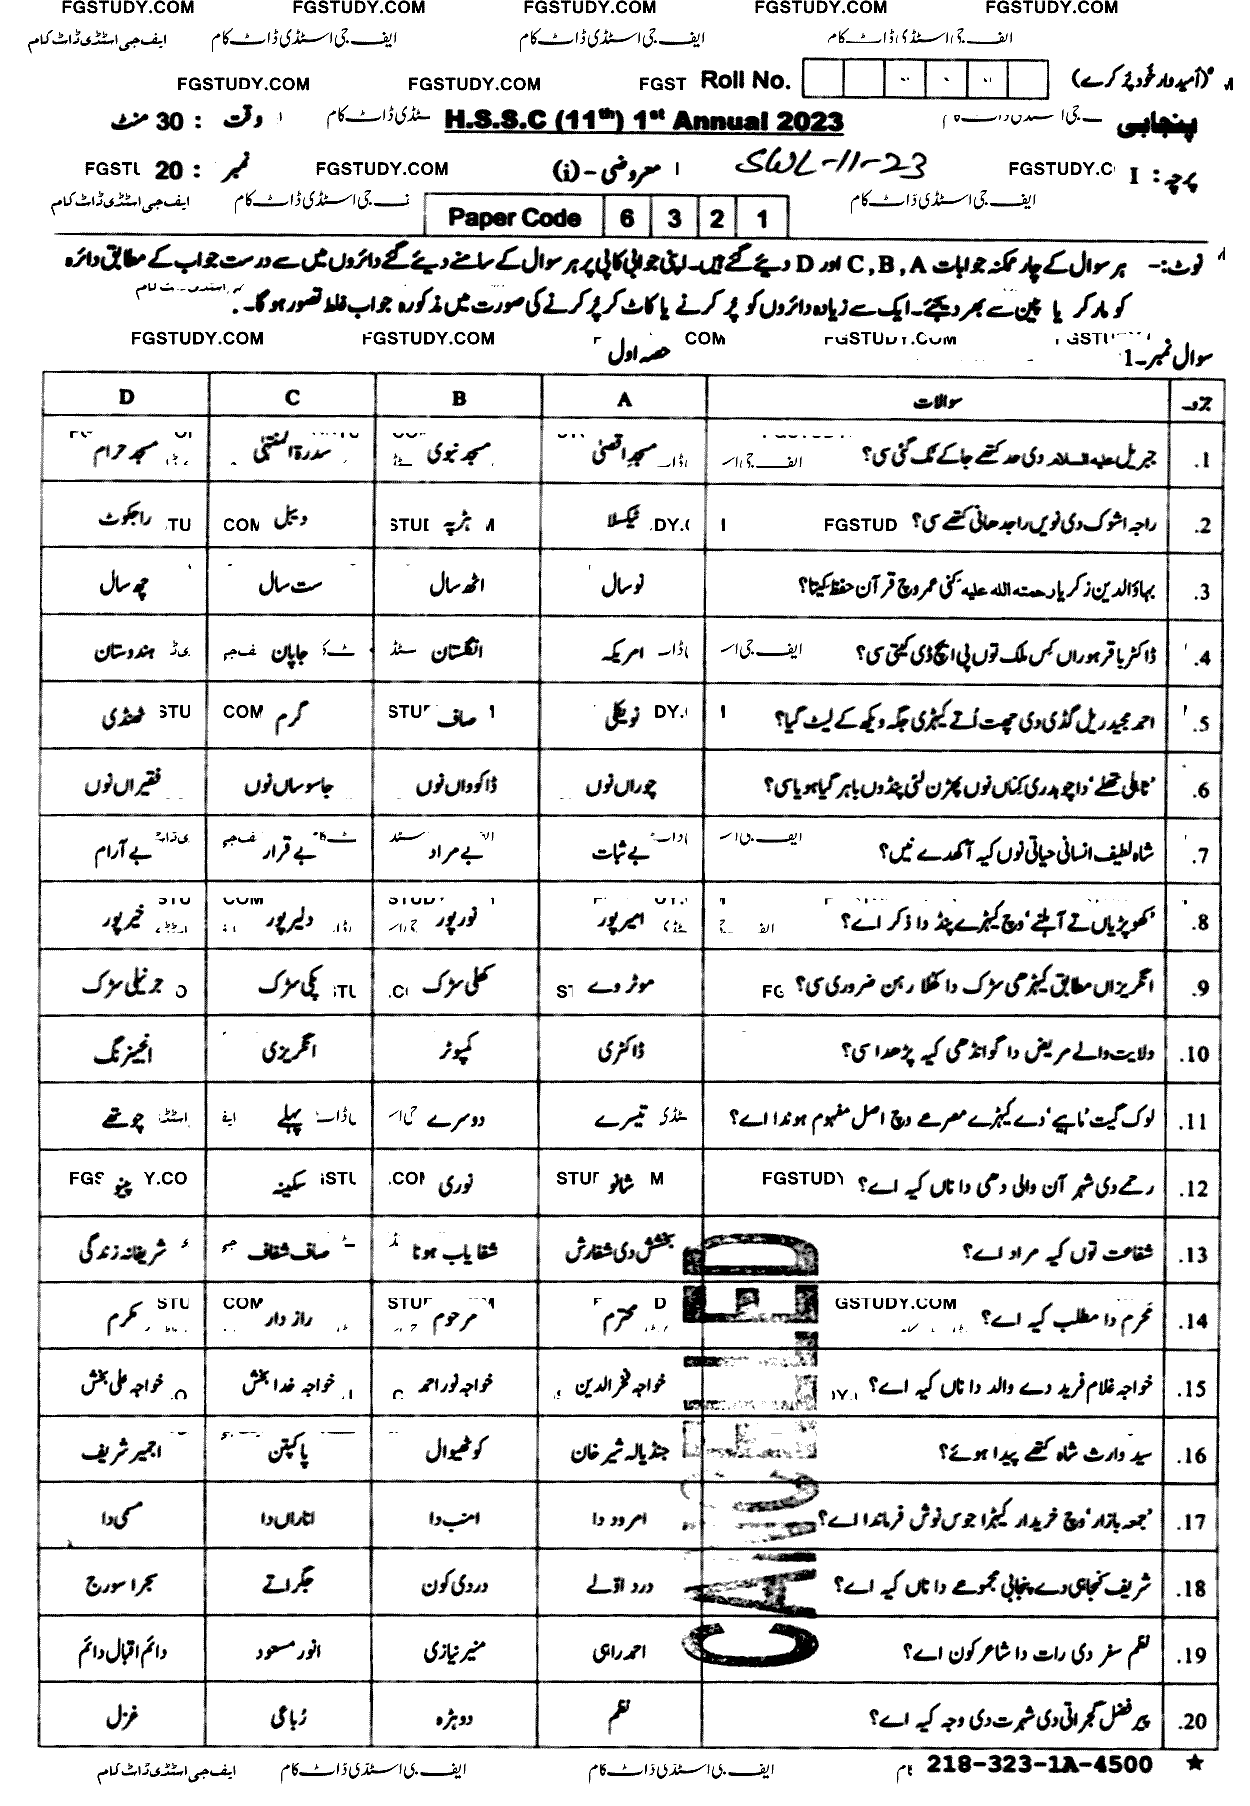 FGSTUDY.COM FGSTUDY.COM FGSTUDY.COM FGSTUDY.COM FGSTUDY.COM
ایف جی اسٹڈی ڈاٹ کام ایف جی اسٹڈی ڈاٹ کام ایف جی اسٹڈی ڈاٹ کام ایف جی اسٹڈی ڈاٹ کام
(اُمیدوار خُود پُر کرے) Roll No. FGST FGSTUDY.COM FGSTUDY.COM
پنجابی H.S.S.C (11th) 1st Annual 2023 وقت : 30 منٹ
پرچہ : I SWL-11-23 معروضی-(i) نمبر : 20
FGSTUDY.COM
ایف جی اسٹڈی ڈاٹ کام
Paper Code 6 3 2 1
نوٹ:- ہر سوال کے چار ممکنہ جوابات A ,B ,C اور D دیئے گئے ہیں۔ اپنی جوابی کاپی پر ہر سوال کے سامنے دیئے گئے دائروں میں سے درست جواب کے مطابق دائرہ
کو مارکر یا پین سے بھر دیجئے۔ ایک سے زیادہ دائروں کو پُر کرنے یا کاٹ کر پُر کرنے کی صورت میں مذکورہ جواب غلط تصور ہو گا۔
FGSTUDY.COM FGSTUDY.COM
سوال نمبر-1 حصہ اول
جزو سوالات A B C D
1. جبریل علیہ السلام دی حد کتھے جا کے مُک گئی سی؟ مسجد اقصٰی مسجد نبوی سدرۃ المنتہٰی مسجد حرام
2. راجہ اشوک دی نویں راجدھانی کتھے سی؟ ٹیکسلا ہڑپہ دیبل راجکوٹ
3. بہاؤالدین زکریا رحمتہ اللہ علیہ کنی عمر وچ قرآن حفظ کیتا؟ نو سال اٹھ سال ست سال چھ سال
4. ڈاکٹر باقر ہوراں کس ملک توں پی ایچ ڈی کیتی سی؟ امریکہ انگلستان جاپان ہندوستان
5. احمد مجید ریل گڈی دی چھت اُتے کیہڑی جگہ ویکھ کے لیٹ گیا؟ نویکلی صاف گرم ٹھنڈی
6. 'ٹاہلی تھلے' دا چوہدری کِناں نوں پھڑن لئی پنڈوں باہر گیا ہویا سی؟ چوراں نوں ڈاکوواں نوں جاسوساں نوں فقیراں نوں
7. شاہ لطیف انسانی حیاتی نوں کیہ آکھدے نیں؟ بے ثبات بے مراد بے قرار بے آرام
8. 'کھوپڑیاں تے آہلنے' وچ کیہڑے پنڈ دا ذکر اے؟ امیرپور نورپور دلیرپور خیرپور
9. انگریزاں مطابق کیہڑی سڑک دا کُھلا رہن ضروری سی؟ موٹر وے کھلی سڑک پکی سڑک جرنیلی سڑک
10. ولایت والے مریض دا گوانڈھی کیہ پڑھدا سی؟ ڈاکٹری کمپوٹر انگریزی انجینرنگ
11. لوک گیت 'ماہیے' دے کیہڑے مصرعے وچ اصل مفہوم ہوندا اے؟ تیسرے دوسرے پہلے چوتھے
12. رحمے دی شہر آن والی دھی دا ناں کیہ اے؟ شانو نوری سکینہ پینو
13. شفاعت توں کیہ مراد اے؟ بخشش دی سفارش شفا یاب ہونا صاف شفاف شریفانہ زندگی
14. محرم دا مطلب کیہ اے؟ محترم مرحوم راز دار مکرم
15. خواجہ غلام فرید دے والد دا ناں کیہ اے؟ خواجہ فخرالدین خواجہ نور احمد خواجہ خدا بخش خواجہ علی بخش
16. سید وارث شاہ کتھے پیدا ہوئے؟ جنڈیالہ شیر خان کوٹھیوال پاکپتن اجمیر شریف
17. 'جمعہ بازار' وچ خریدار کیہڑا جوس نوش فرماندا اے؟ امرود دا امب دا اناراں دا مسمی دا
18. شریف کنجاہی دے پنجابی مجموعے دا ناں کیہ اے؟ درد اوّلے دردی کون جگراتے سجرا سورج
19. نظم سفر دی رات دا شاعر کون اے؟ احمد راہی منیر نیازی انور مسعود دائم اقبال دائم
20. پیر فضل گجراتی دی شہرت دی وجہ کیہ اے؟ نظم دوہڑہ رُباعی غزل
CANCELLED
218-323-1A-4500 ★
ایف جی اسٹڈی ڈاٹ کام ایف جی اسٹڈی ڈاٹ کام ایف جی اسٹڈی ڈاٹ کام ایف جی اسٹڈی ڈاٹ کام